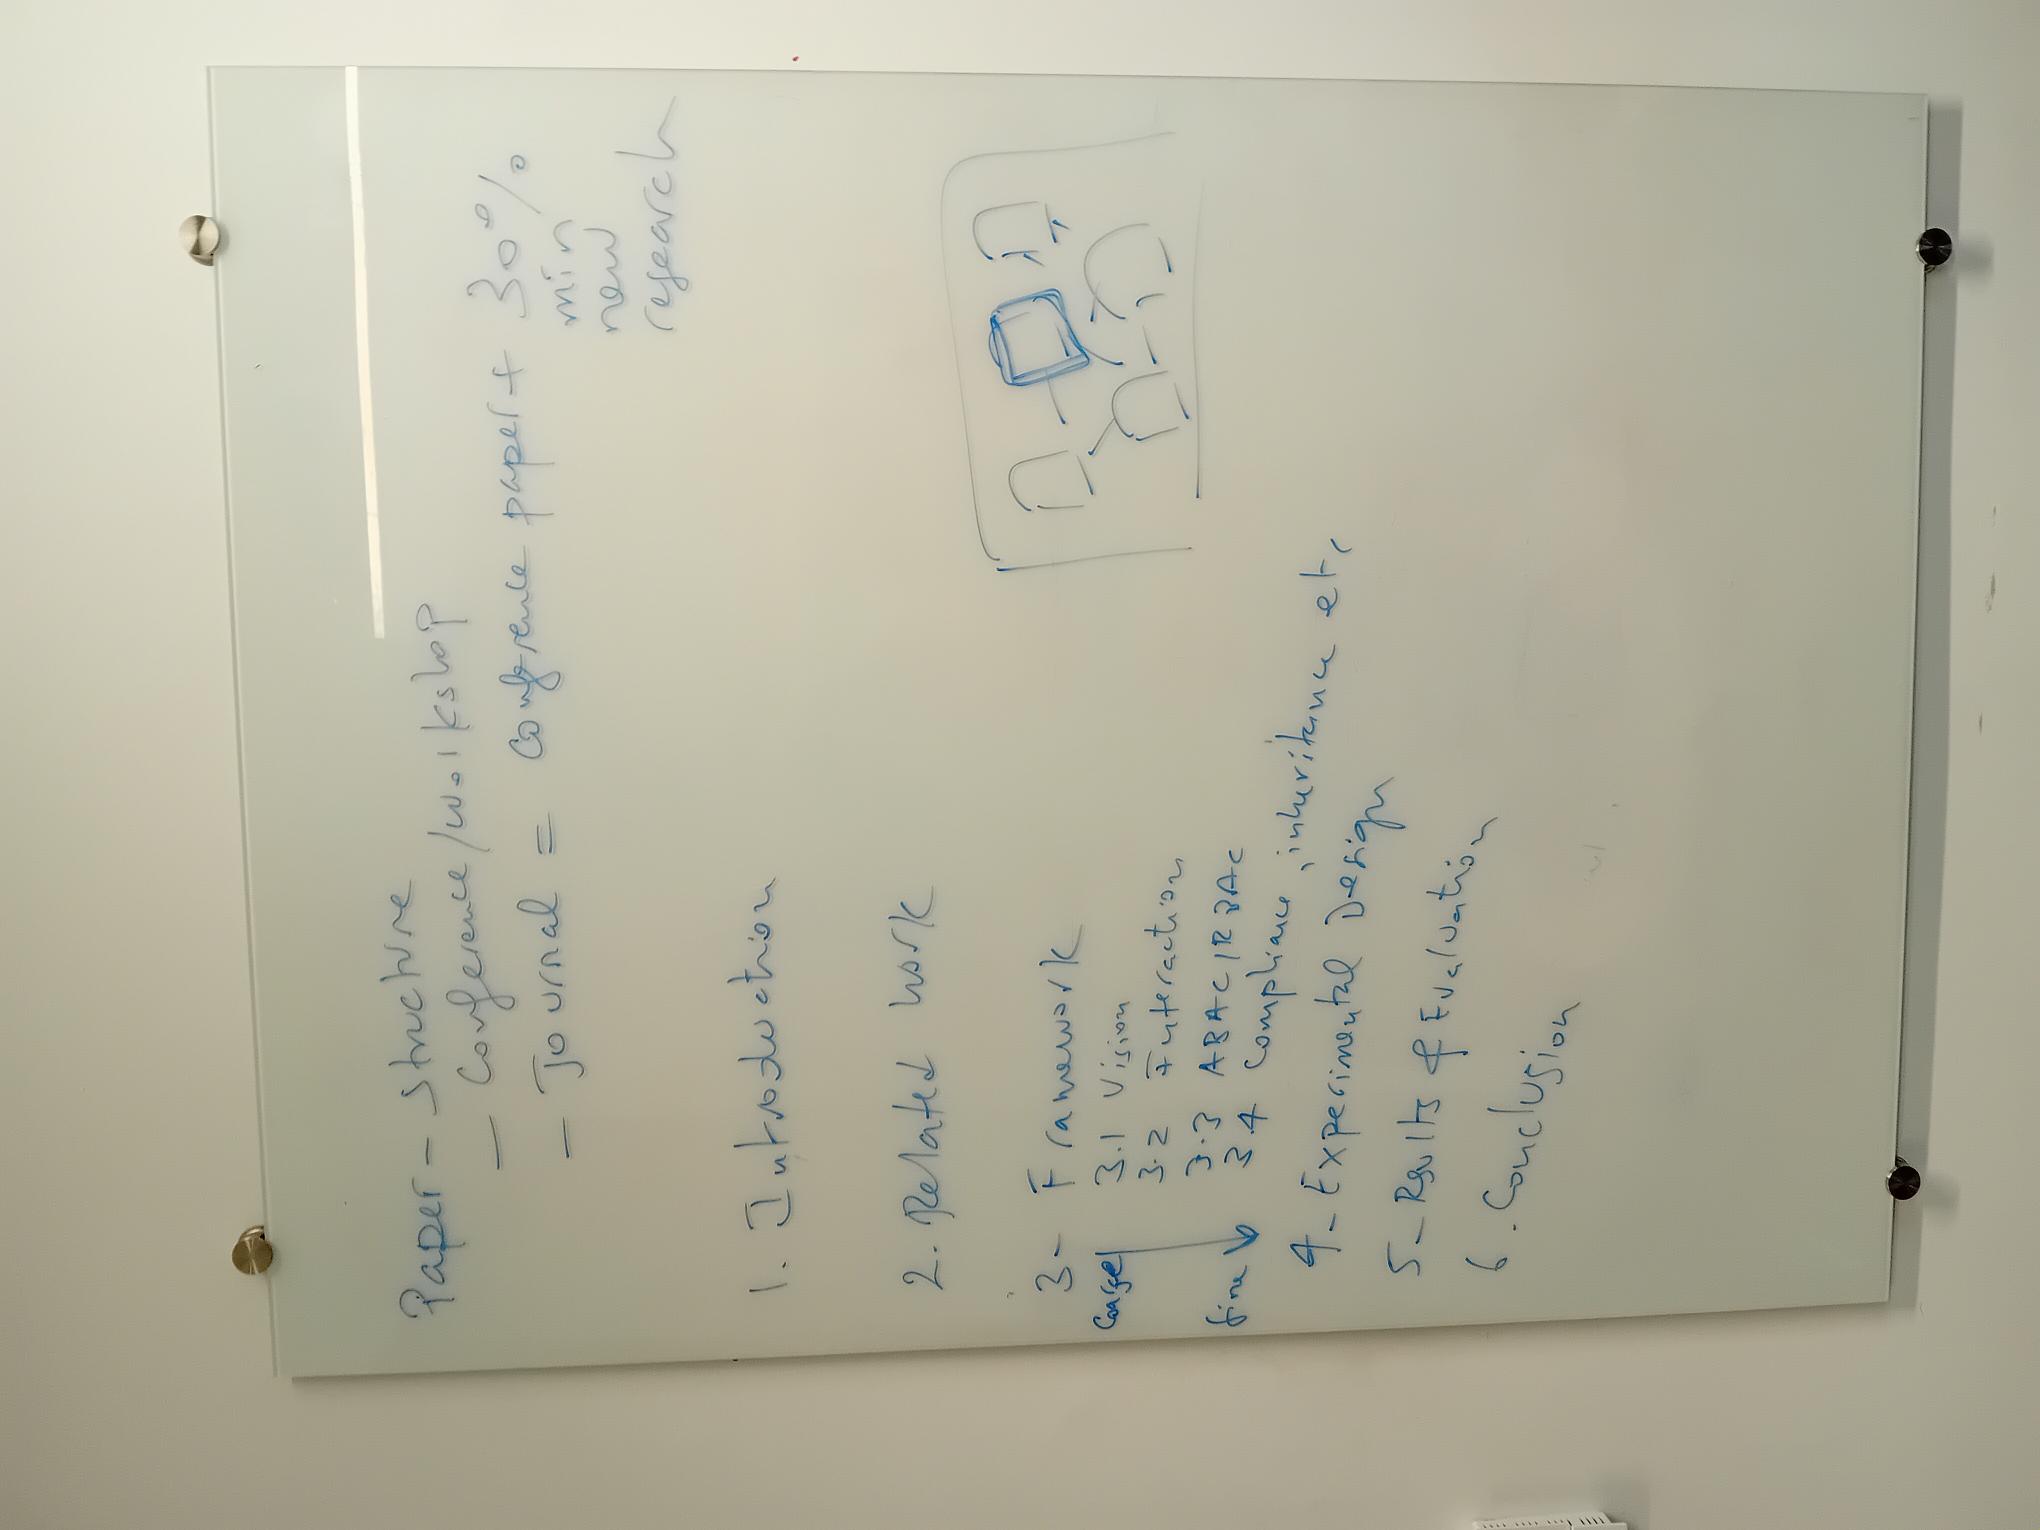 Paper - Structure
- Conference/workshop
- Journal = Conference paper + 30%
min
new
research
1. Introduction
2. Related work
3- Framework
Coarse
3.1 Vision
3.2 Interaction
3.3 ABAC/RBAC
fine
3.4 Compliance, inheritance etc
4- Experimental Design
5- Results & Evaluation
6. Conclusion